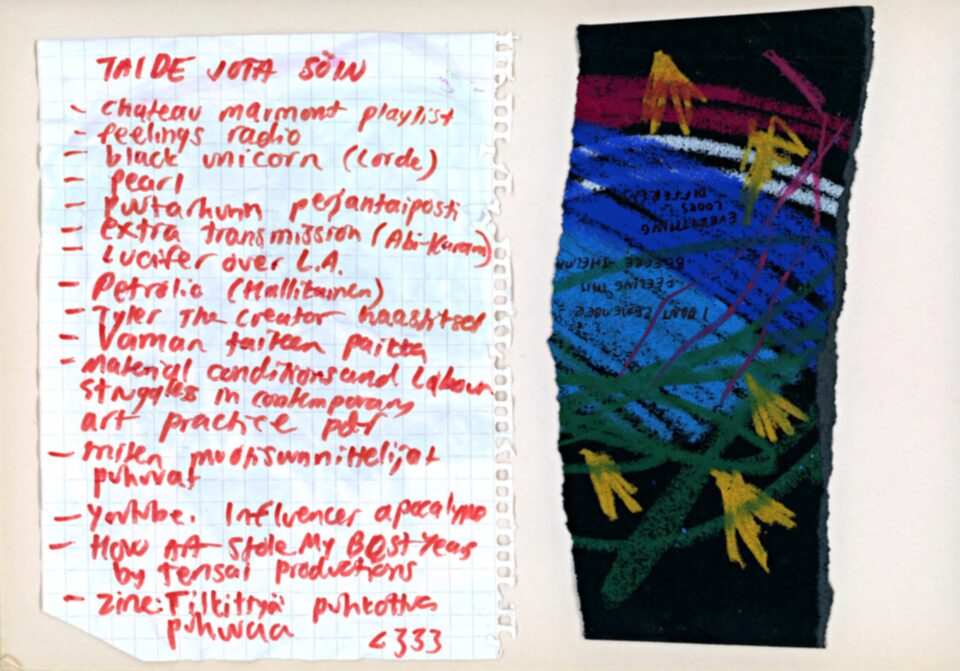 TAIDE JOTA SÖIN
- chateau marmont playlist
- feelings radio
- black unicorn (Lorde)
- pearl
- perjantaiposti
- extra transmission (Abi-Karam)
- Lucifer over L.A.
- Petrolio (Hallitainen)
- Tyler The Creator
- taiteen paikka
- Material conditions and Labour
struggles in contemporary
art practice pdf
- miten muotisuunnittelijat
puhuvat
- youtube. Influencer apocalypse
- How Art Stole My Best Years
by Tensai Productions
- zine: Tilkittyä
<333
I DON'T REMEMBER
FEELING THIS
BEFORE THELMA
EVERYTHING
LOOKS
DIFFERENT